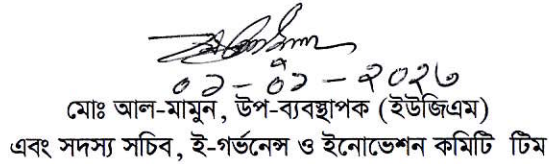 মোঃ আল-মামুন, উপ-ব্যবস্থাপক (ইউজিএম)
এবং সদস্য সচিব, ই-গর্ভনেন্স ও ইনোভেশন কমিটি টিম